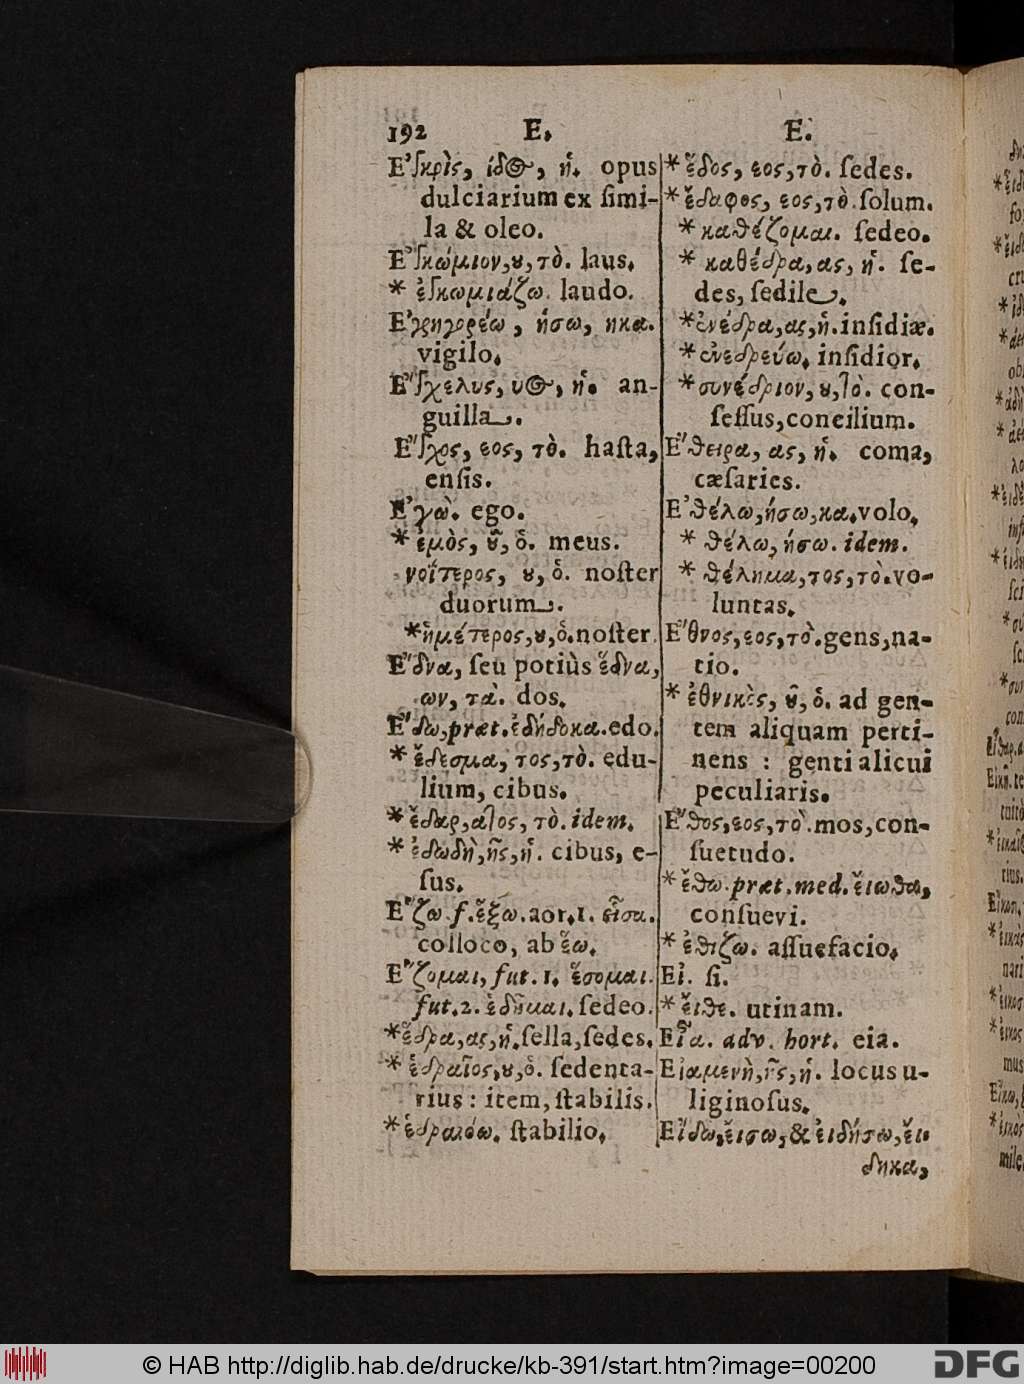 192 E. E.
Ε᾿γκρὶς, ίδος, ἡ. opus
dulciarium ex ſimi-
la & oleo.
Ε᾿γκώμιον, ου, τὸ. laus.
* ἐγκωμιάζω. laudo.
Ε᾿γρηγορέω, ήσω, ηκα.
vigilo.
Ε῎γχελυς, υος, ἡ. an-
guilla.
Ε῎γχος, εος, τὸ. haſta,
enſis.
Ε᾿γὼ. ego.
* ἐμὸς, οῦ, ὁ. meus.
νοΐτερος, ου, ὁ. noſter
duorum.
*ἡμέτερος, ου, ὁ. noſter.
Ε῎δνα, ſeu potiùs ἕδνα,
ων, τὰ. dos.
Ε῎δω, præt. ἐδήδοκα. edo.
* ἔδεσμα, τος, τὸ. edu-
lium, cibus.
* ἔδαρ, ατος, τὸ. idem.
* ἐδωδὴ, ῆς, ἡ. cibus, e-
ſus.
Ε῞ζω. f. ἕξω. aor. 1. εἷσα.
colloco, ab ἕω.
Ε῞ζομαι, fut. 1. ἕσομαι.
fut. 2. ἑδοῦμαι. ſedeo.
*ἕδρα, ας, ἡ. ſella, ſedes.
* ἑδραῖος, ου, ὁ. ſedenta-
rius: item, ſtabilis.
* ἑδραιόω. ſtabilio.
* ἕδος, εος, τὸ. ſedes.
* ἔδαφος, εος, τὸ. ſolum.
* καθέζομαι. ſedeo.
* καθέδρα, ας, ἡ. ſe-
des, ſedile.
* ἐνέδρα, ας, ἡ. inſidiæ.
* ἐνεδρεύω. inſidior.
* συνέδριον, ου, τὸ. con-
ſeſſus, concilium.
Ε῎θειρα, ας, ἡ. coma,
cæſaries.
Ε᾿θέλω, ήσω, κα. volo.
* θέλω, ήσω. idem.
* θέλημα, τος, τὸ. vo-
luntas.
Ε῎θνος, εος, τὸ. gens, na-
tio.
* ἐθνικὸς, οῦ, ὁ. ad gen-
tem aliquam perti-
nens : genti alicui
peculiaris.
Ε῎θος, εος, τὸ. mos, con-
ſuetudo.
* ἔθω. præt. med. ἔιωθα,
conſuevi.
* ἐθίζω. aſſuefacio.
Εἰ. ſi.
* ἔιθε. utinam.
Εἶα. adv. hort. eia.
Εἰαμενὴ, ῆς, ἡ. locus u-
liginoſus.
Εἴδω, ἔισω, & ἐιδήσω, ἔι-
δηκα,
© HAB http://diglib.hab.de/drucke/kb-391/start.htm?image=00200
DFG